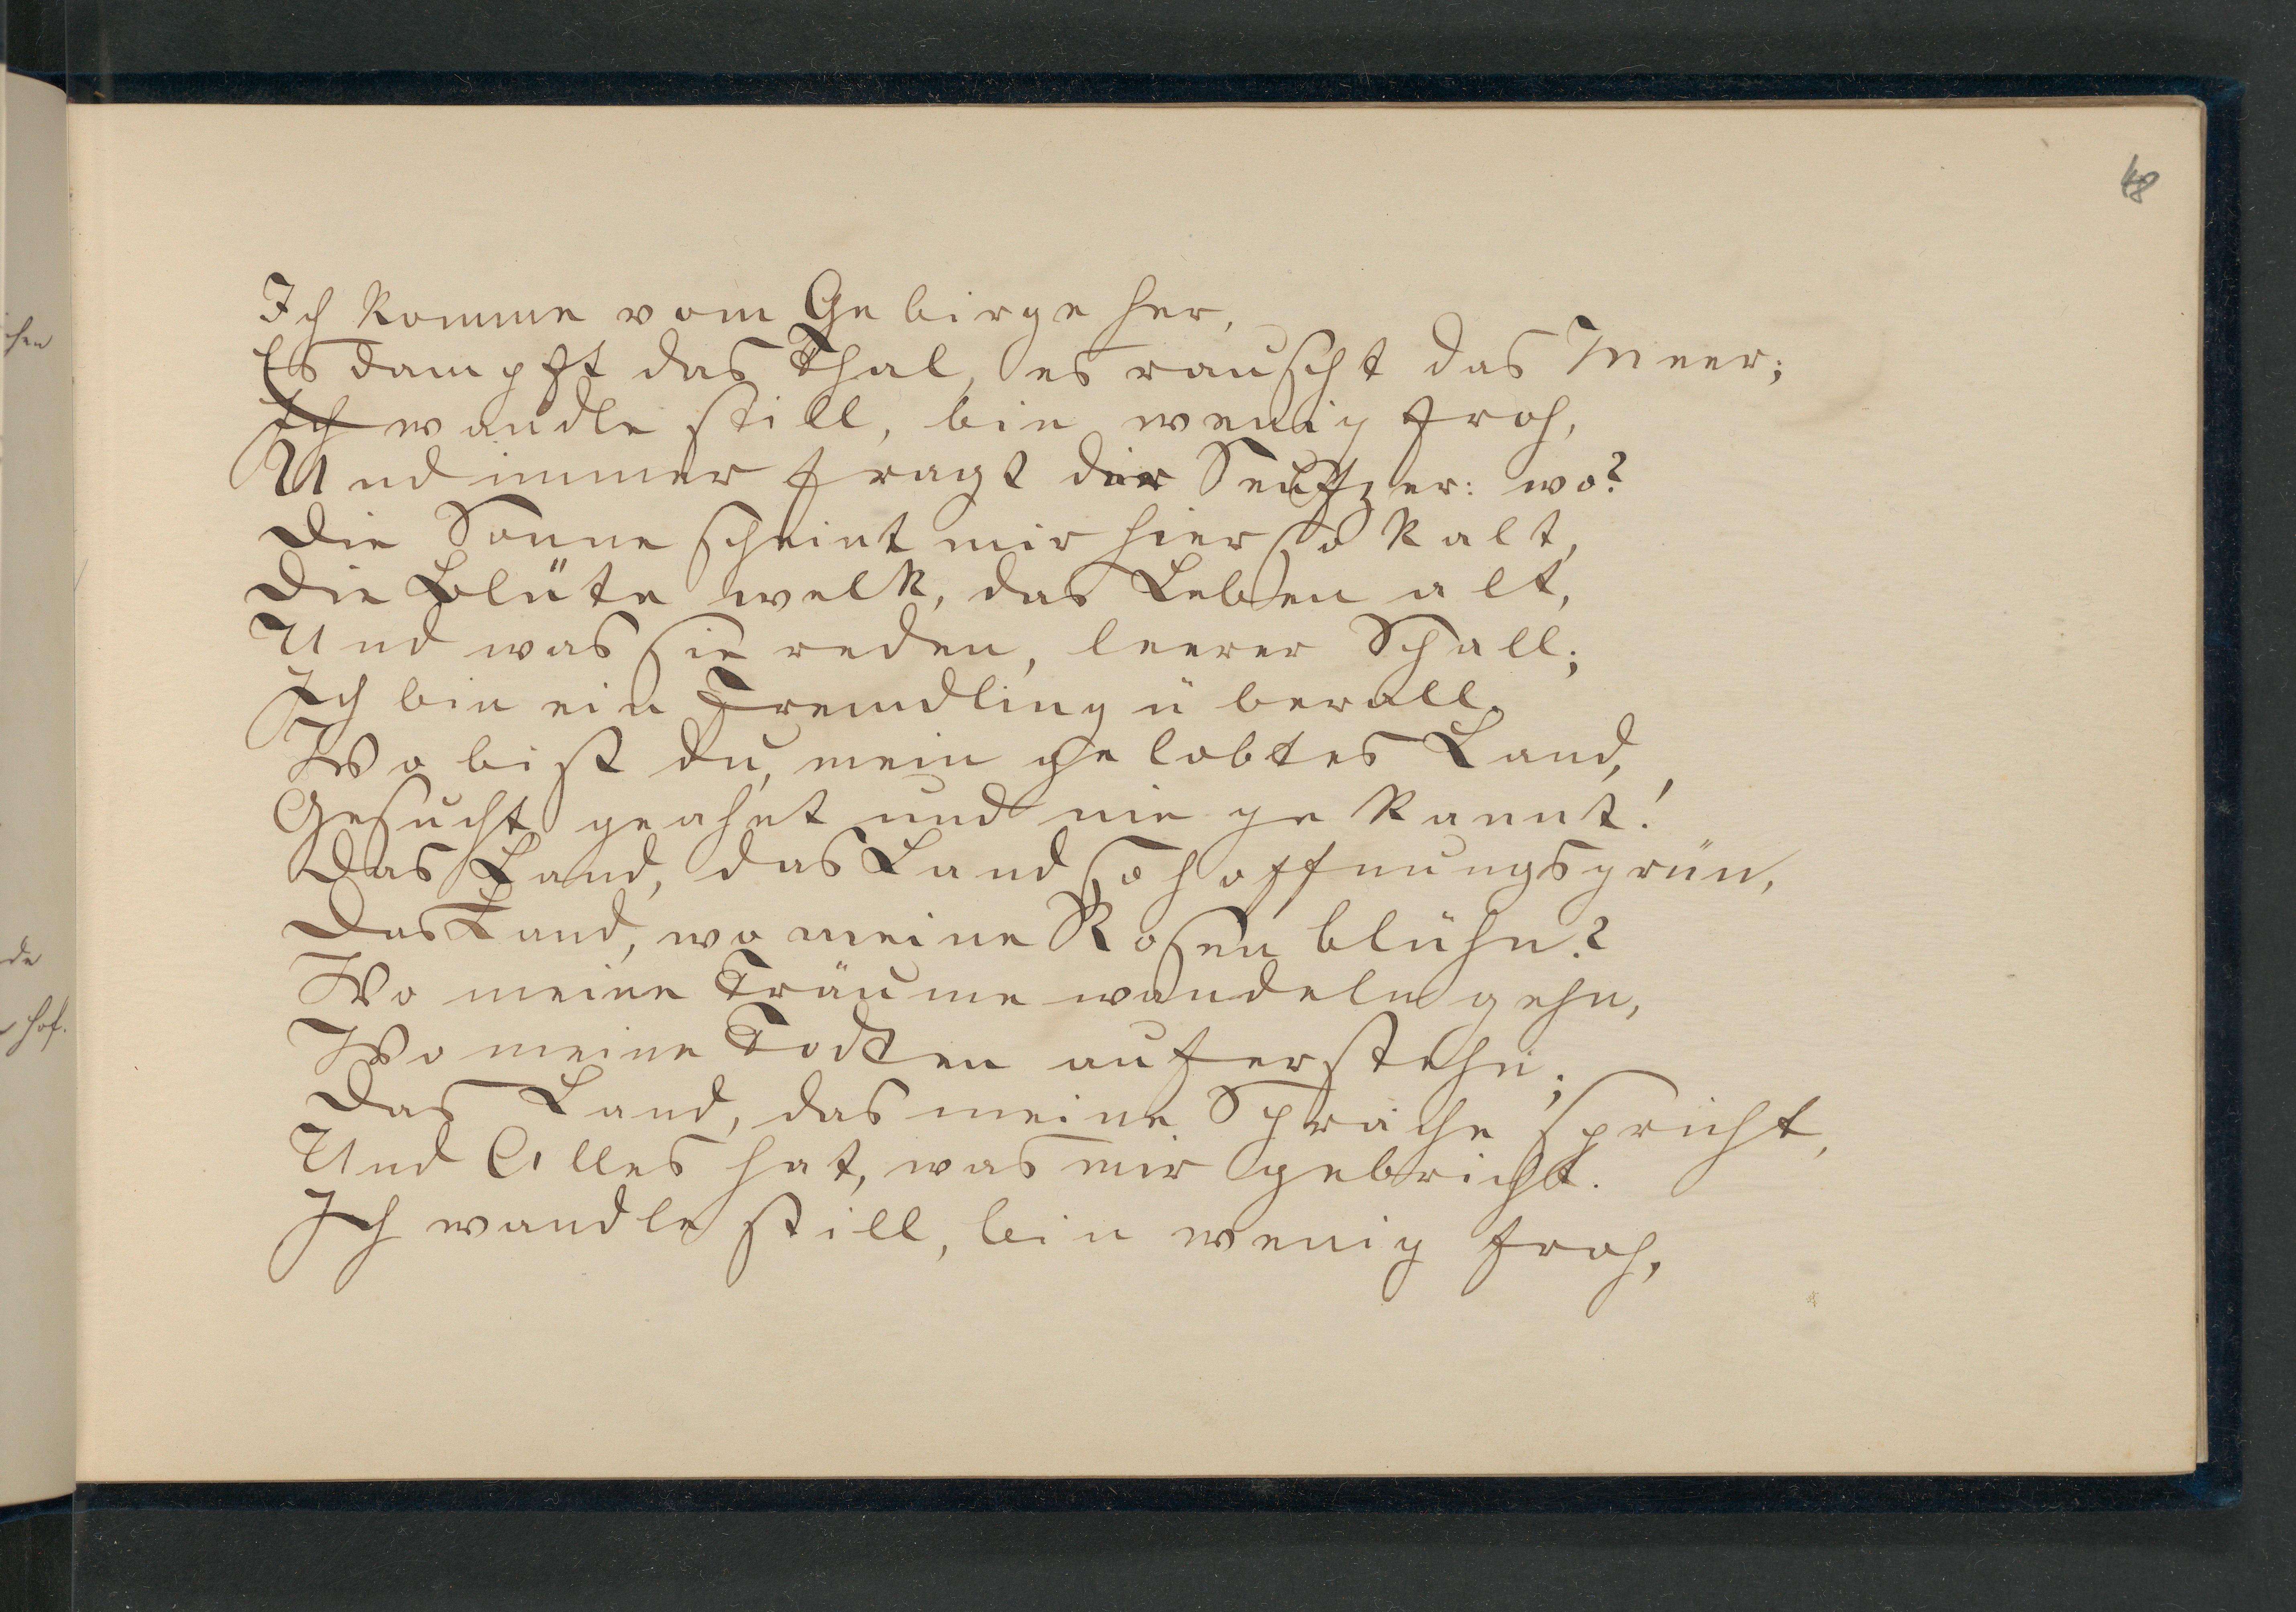 48
Ich komme vom Gebirge her,
Es dampft das Thal, es rauscht das Meer;
Ich wandle still, bin wenig froh,
Und immer fragt der Seufzer: wo?
Die Sonne scheint mir hier so kalt,
Die Blüte welk, das Leben alt,
Und was sie reden, leerer Schall;
Ich bin ein Fremdling überall.
Wo bist du, mein gelobtes Land,
Gesucht, geahnt und nie gekannt!
Das Land, das Land so hoffnungsgrün,
Das Land, wo meine Rosen blühn?
Wo meine Träume wandeln gehn,
Wo meine Todten auferstehn;
Das Land, das meine Sprache spricht,
Und Alles hat, was mir gebricht.
Ich wandle still, bin wenig froh,
hof.